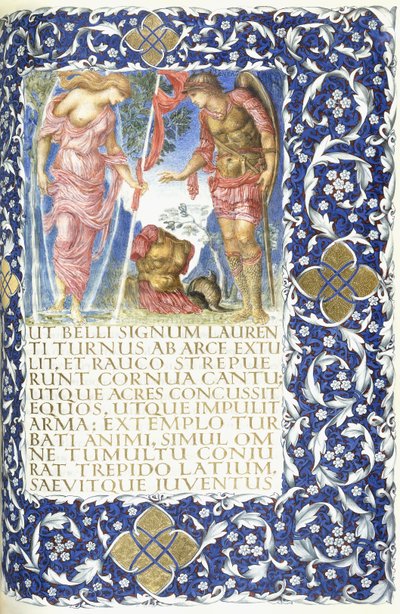 UT BELLI SIGNUM LAUREN
TI TURNUS AB ARCE EXTU
LIT, ET RAUCO STREPUE
RUNT CORNUA CANTU;
UTQUE ACRES CONCUSSIT
EQUOS, UTQUE IMPULIT
ARMA: EXTEMPLO TUR
BATI ANIMI, SIMUL OM
NE TUMULTU CONJU
RAT TREPIDO LATIUM,
SAEVITQUE JUVENTUS